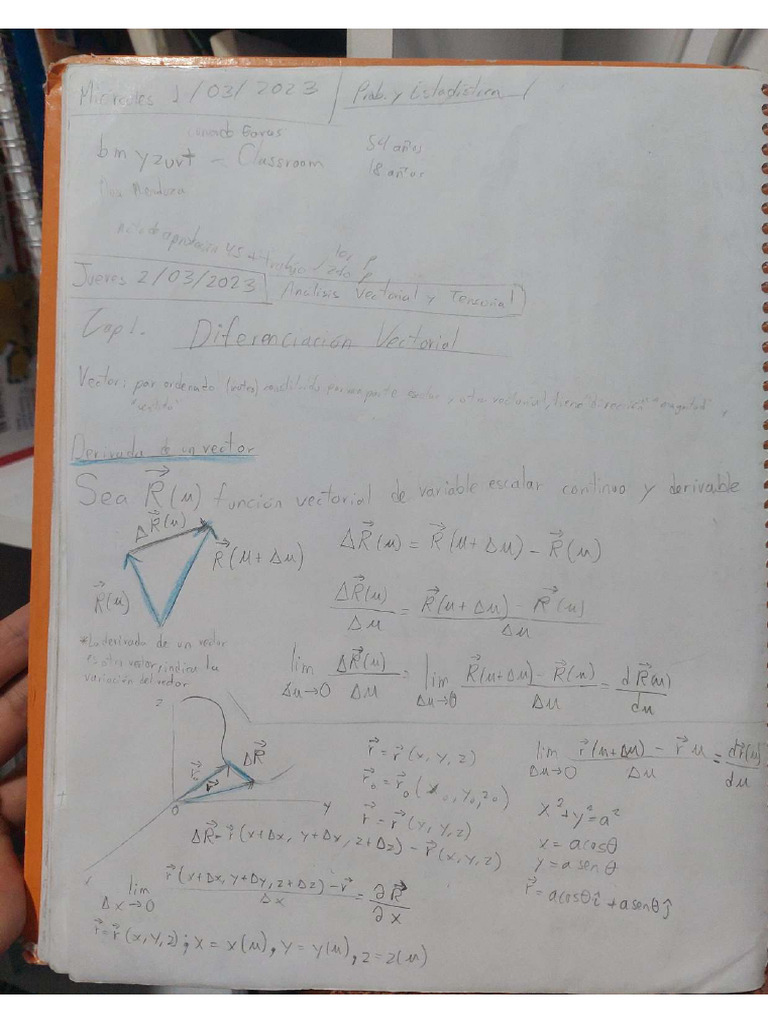 Miércoles 1/03/2023 Prob. y Estadística
bmyzurt Classroom
54 años
18 años
trabajo
Jueves 2/03/2023 Análisis Vectorial y Tensorial
Cap 1. Diferenciación Vectorial
Vector: par ordenado constituido por una parte escalar y otra vectorial, tiene "dirección" "magnitud",
"sentido"
Derivada de un vector
Sea R⃗(u) función vectorial de variable escalar continuo y derivable
ΔR⃗(u)
R⃗(u+Δu)
R⃗(u)
ΔR⃗(u) = R⃗(u+Δu) - R⃗(u)
ΔR⃗(u)/Δu = (R⃗(u+Δu) - R⃗(u))/Δu
*La derivada de un vector
es otro vector, indica la
variación del vector
lim Δu→0 ΔR⃗(u)/Δu = lim Δu→0 (R⃗(u+Δu) - R⃗(u))/Δu = dR⃗(u)/du
z
ΔR⃗
0
y
x
r⃗ = r⃗(x, y, z)
r⃗₀ = r⃗₀(x₀, y₀, z₀)
r⃗ = r⃗(x, y, z)
ΔR⃗ = r⃗(x+Δx, y+Δy, z+Δz) - r⃗(x, y, z)
lim Δx→0 (r⃗(x+Δx, y+Δy, z+Δz) - r⃗)/Δx = ∂R⃗/∂x
r⃗ = r⃗(x, y, z); x = x(u), y = y(u), z = z(u)
lim Δu→0 (r⃗(u+Δu) - r⃗ u)/Δu = dr⃗(u)/du
x² + y² = a²
x = a cosθ
y = a senθ
r⃗ = a cosθ î + a senθ ĵ